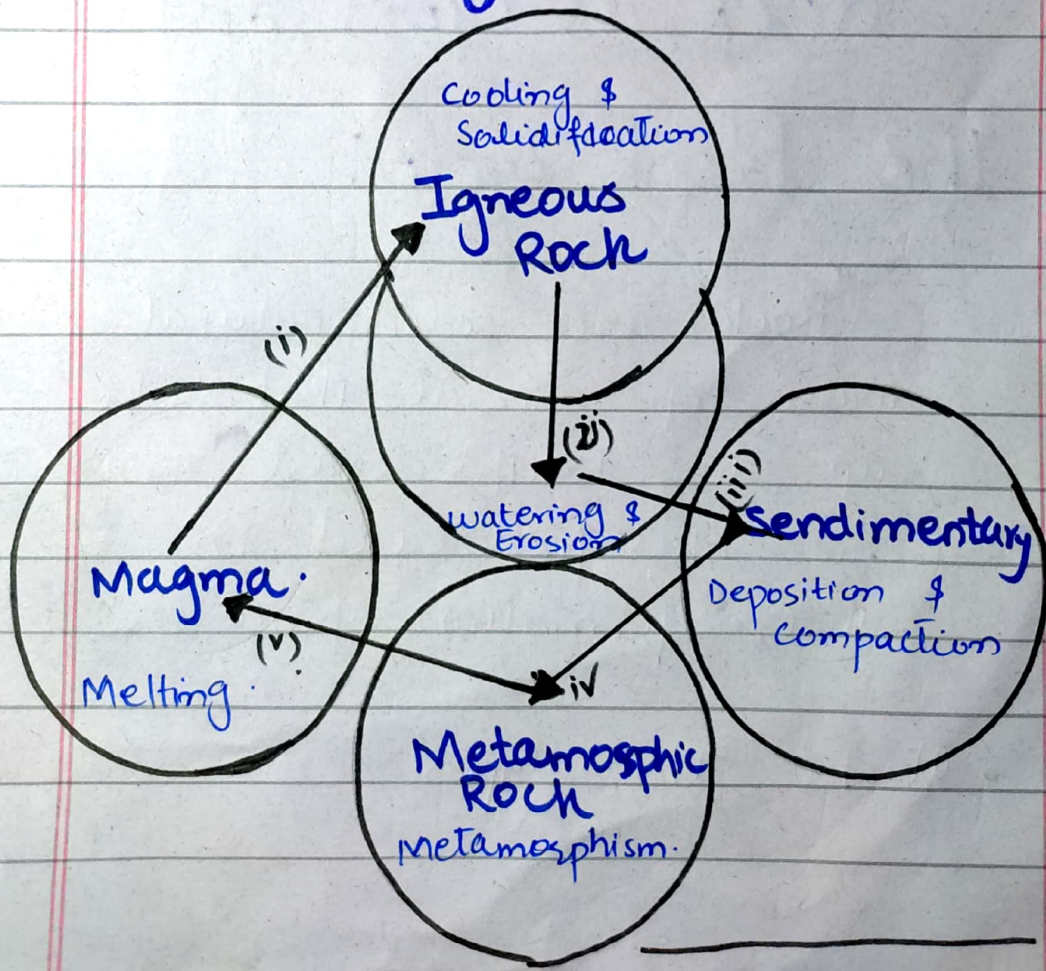 Cooling &
Solidifdcation
Igneous
Rock
(i)
(ii)
(iii)
Watering &
Erosion
Sendimentary
Deposition &
Compaction
Magma.
(v)
Melting.
iv
Metamosphic
Rock
Metamosphism.